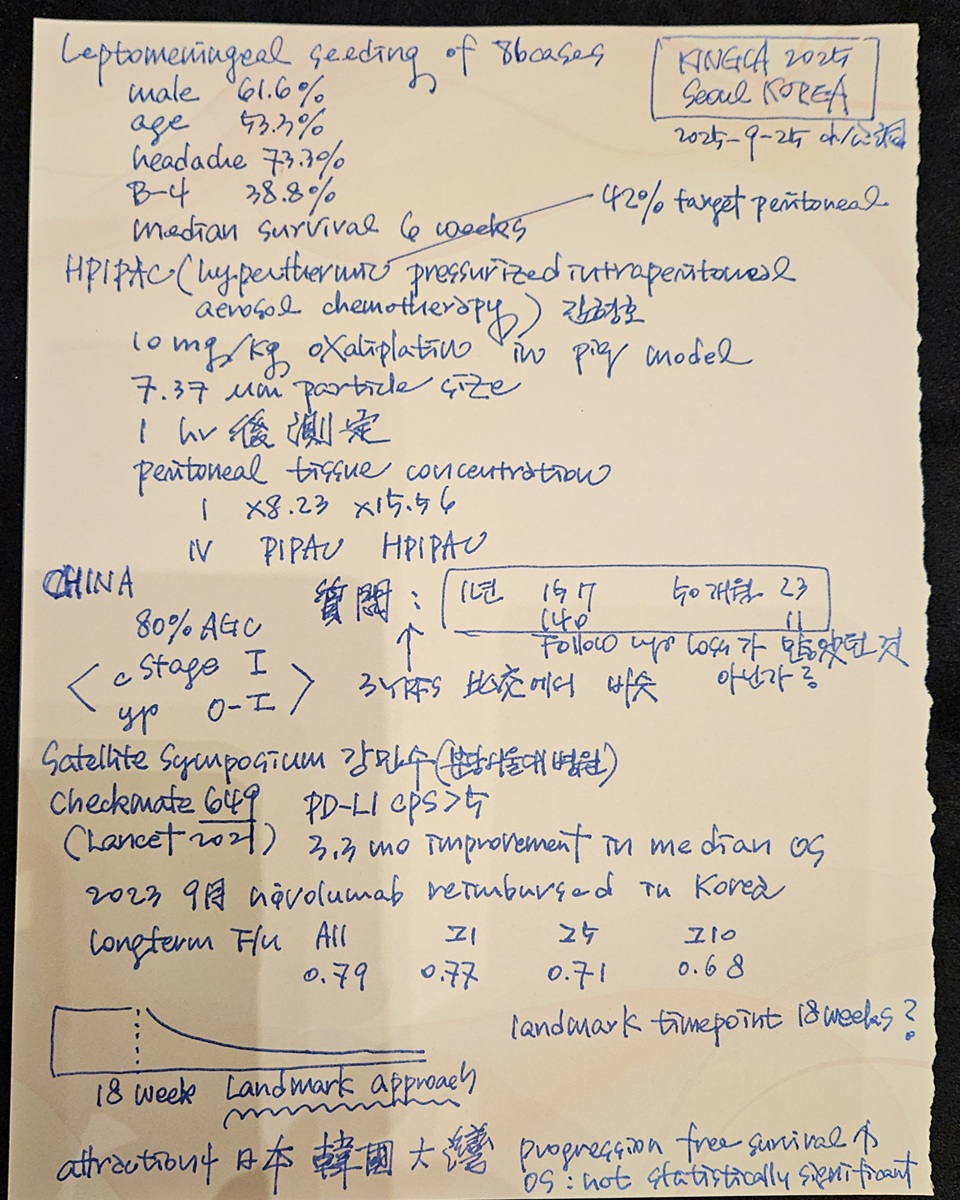 Leptomeningeal seeding of 86cases
KINGCA 2025
Seoul KOREA
2025-9-25
male 61.6%
age 53.3%
headache 73.3%
B-4 38.8%
42% target peritoneal
median survival 6 weeks
HPIPAC (hyperthermic pressurized intraperitoneal
aerosol chemotherapy) 김형호
10 mg/kg oxaliplatin in pig model
7.37 μm particle size
1 hr 後 測定
peritoneal tissue concentration
1 x8.23 x15.56
IV PIPAC HPIPAC
CHINA
質問 : 1년 157 50개월 23
140 11
80% AGC
Follow up loss가 많았던 것
c stage I
3Y RFS 比交에서 비슷 아닌가 ?
yp 0-I
Satellite Symposium 강민수 (분당서울대병원)
Checkmate 649 PD-L1 CPS>5
(Lancet 2021) 3.3 mo improvement in median OS
2023 9月 nivolumab reimbursed in Korea
longterm F/u All ≥1 ≥5 ≥10
0.79 0.77 0.71 0.68
landmark timepoint 18 weeks ?
18 week Landmark approach
attraction4 日本 韓國 大灣 progression free survival ↑
OS : not statistically significant